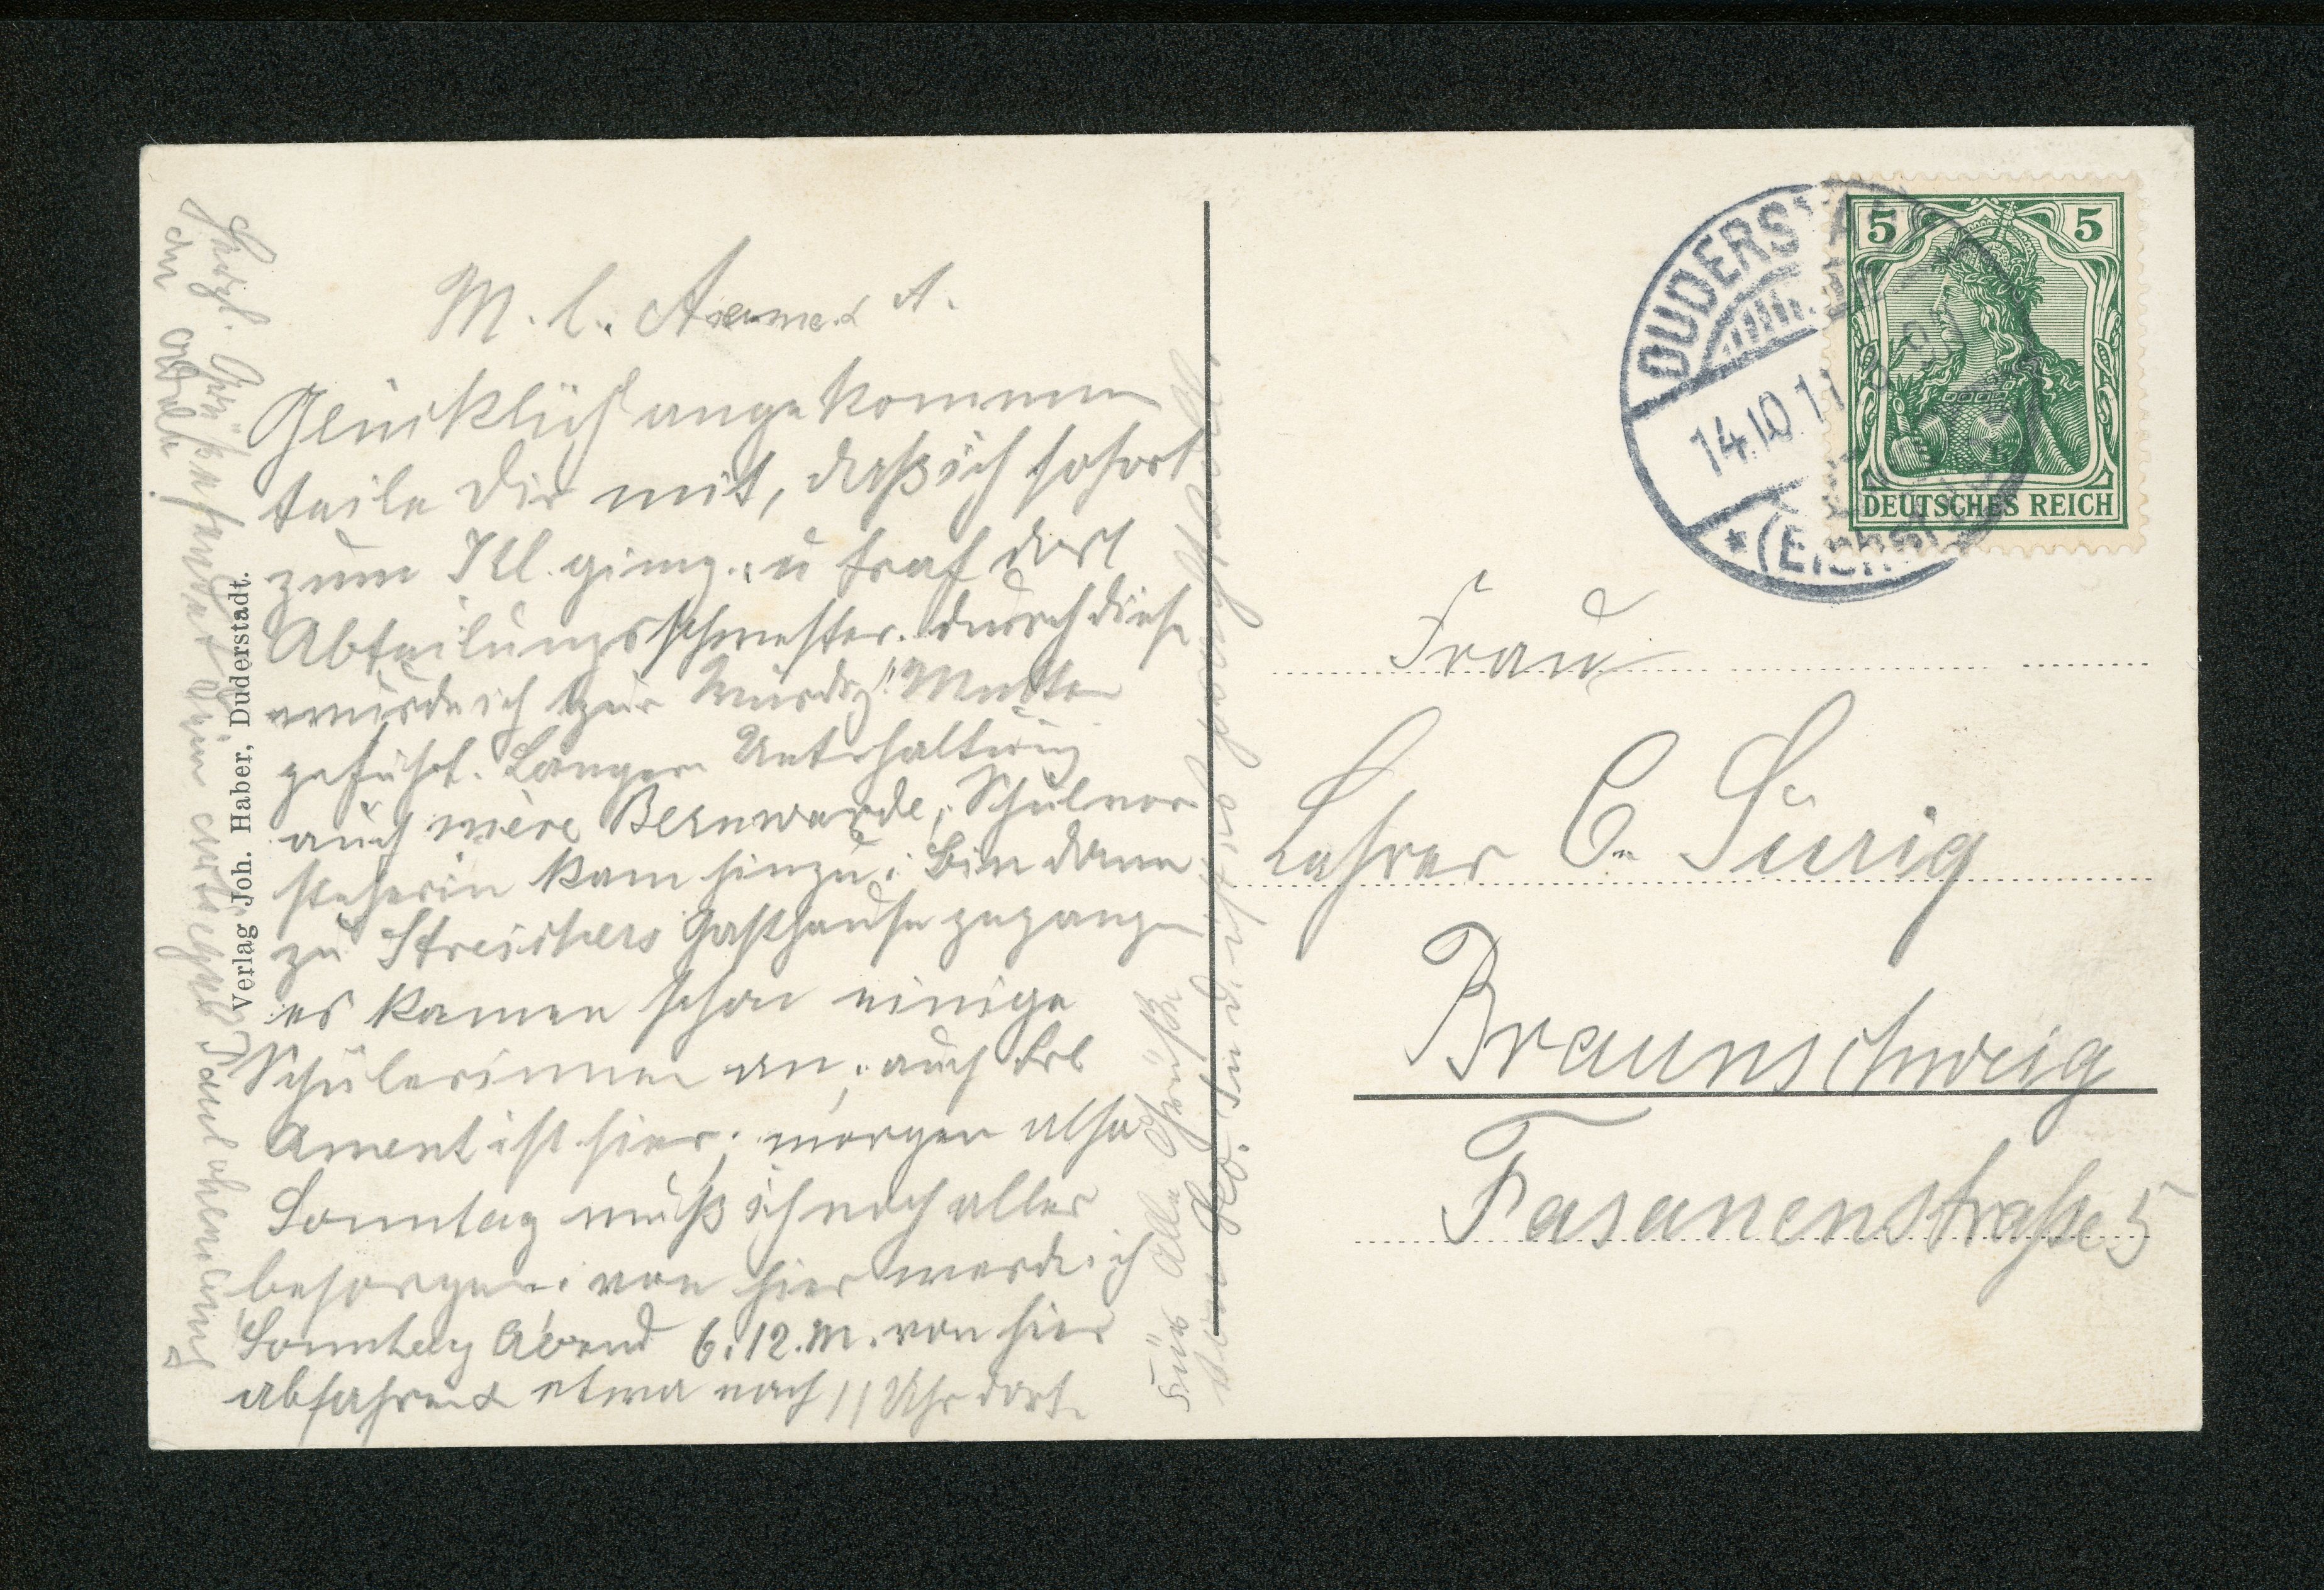 M. l. A.
Glücklich angekommen
teile Dir mit, daß ich sofort
zum Kl. ging. u traf dort
Abteilungsschwester. durch diese
wurde ich zur Würdg. Mutter
geführt. Langere Unterhaltung
auch mère Bernwarde, Schulvor
steherin kam hinzu. Bin dann
zu Streichers Gasthause gegangen
es kamen schon einige
Schülerinnen an, auch Frl
Ament ist hier. morgen also
Sonntag muß ich noch alles
besorgen. von hier werde ich
Sonntag Abend 6.12.M. von hier
abfahren & etwa nach 11 Uhr dort.
Für Alle Grüße
Herzl. Grüße sendet Dein
Verlag Joh. Haber, Duderstadt.
DUDERSTADT
14.10.11
(Eichsf
5 5
DEUTSCHES REICH
Frau
Lehrer C. Surig
Braunschweig
Fasanenstraße 5